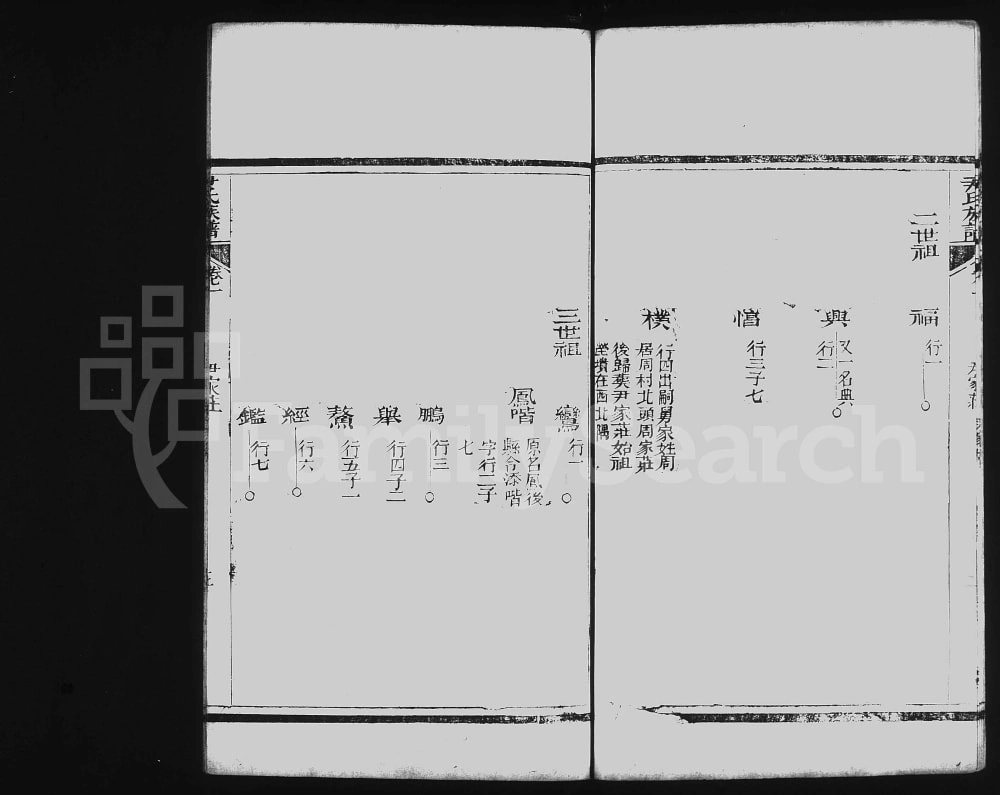 二世祖
福
行一
興
又一名典
行二
愭
行三子七
樸
行四出嗣舅家姓周
居周村北頭周家莊
後歸葬尹家莊始祖
塋墳在西北隅
三世祖
鸞
行一
鳳階
原名鳳後
縣令添階
字行二子
七
鵬
行三
舉
行四子二
鰲
行五子一
經
行六
鑑
行七
尹氏族譜
卷一
FamilySearch